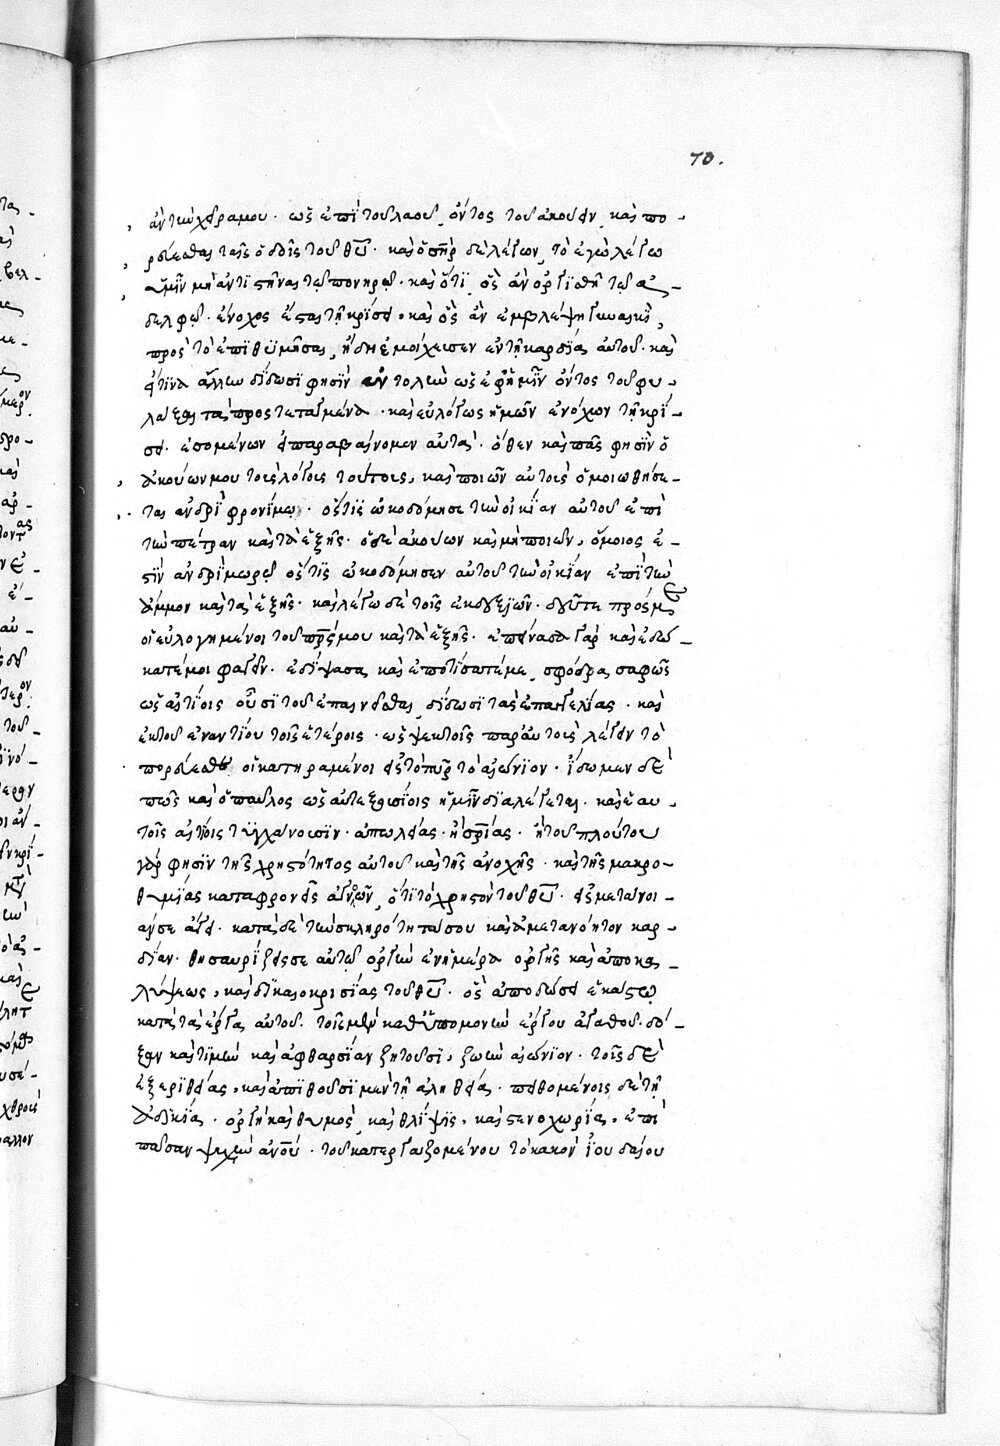 70.
ἀντιώχειραμου · ὡς ἐπὶ τοῦ λαοῦ, ὄντος τοῦ ἀκούειν, καὶ πο-
ρεύεσθαι ταῖς ὁδοῖς τοῦ θῦ · καὶ ὁ σὴρ δὲ λέγων, τὸ ἐγὼ λέγω
ὑμῖν μὴ ἀντιστῆναι τῷ πονηρῷ · καὶ ὅτι, ὃς ἂν ὀργισθῇ τῷ ἀ-
δελφῷ · ἔνοχος ἔσται τῇ κρίσει, καὶ ὃς ἂν ἐμβλέψῃ γυναικὶ,
πρὸς τὸ ἐπιθυμῆσαι, ἤδη ἐμοίχευσεν ἐν τῇ καρδίᾳ αὐτοῦ · καὶ
εἴ τινα ἄλλην δίδωσι φησὶν ἐντολὴν ὡς ἐφ' ἡμῖν ὄντος τοῦ φυ-
λάξασθαι τὰ προστεταγμένα · καὶ εὐλόγως ἡμῶν ἐνόχων τῇ κρί-
σει ἐσομένων εἰ παραβαίνομεν αὐτά · ὅθεν καὶ πᾶς φησὶν ὁ
ἀκούων μου τοὺς λόγους τούτους, καὶ ποιῶν αὐτοὺς ὁμοιωθήσε-
ται ἀνδρὶ φρονίμῳ · ὅστις ᾠκοδόμησε τὴν οἰκίαν αὐτοῦ ἐπὶ
τὴν πέτραν καὶ τὰ ἑξῆς · ὁ δὲ ἀκούων καὶ μὴ ποιῶν, ὅμοιος ἐ-
στὶν ἀνδρὶ μωρῷ ὅστις ᾠκοδόμησεν αὐτοῦ τὴν οἰκίαν ἐπὶ τὴν
ἄμμον καὶ τὰ ἑξῆς · καὶ λέγω δὲ τοῖς ἐκ δεξιῶν · δεῦτε πρός με
οἱ εὐλογημένοι τοῦ πρς μου καὶ τὰ ἑξῆς · ἐπείνασα γὰρ καὶ ἐδώ-
κατέ μοι φαγεῖν · ἐδίψασα καὶ ἐποτίσατέ με, σφόδρα σαφῶς
ὡς αἰτίοις οὖσι τοῦ ἐπαινεῖσθαι, δίδωσι τὰς ἐπαγγελίας · καὶ
ἐκ τοῦ ἐναντίου τοῖς ἑτέροις · ὡς ψεκτοῖς παρ' αὐτοὺς λέγειν τὸ
πορεύεσθε οἱ κατηραμένοι εἰς τὸ πῦρ τὸ αἰώνιον · ἴδωμεν δὲ
πῶς καὶ ὁ παῦλος ὡς αὐτεξουσίοις ἡμῖν διαλέγεται · καὶ ἑαυ-
τοῖς αἰτίοις τυγχάνουσιν · ἀπωλείας · ἢ σρίας · ἢ τοῦ πλούτου
γάρ φησὶν τῆς χρηστότητος αὐτοῦ καὶ τῆς ἀνοχῆς · καὶ τῆς μακρο-
θυμίας καταφρονεῖς ἀγνοῶν, ὅτι τὸ χρηστὸν τοῦ θῦ · εἰς μετάνοι-
άν σε ἄγει · κατὰ δὲ τὴν σκληρότητά σου καὶ ἀμετανόητον καρ-
δίαν · θησαυρίζεις σε αὐτῷ ὀργὴν ἐν ἡμέρᾳ ὀργῆς καὶ ἀποκα-
λύψεως, καὶ δικαιοκρισίας τοῦ θῦ · ὃς ἀποδώσει ἑκάστῳ
κατὰ τὰ ἔργα αὐτοῦ · τοῖς μὲν καθ' ὑπομονὴν ἔργου ἀγαθοῦ · δό-
ξαν καὶ τιμὴν καὶ ἀφθαρσίαν ζητοῦσι, ζωὴν αἰώνιον · τοῖς δὲ
ἐξ ἐριθείας, καὶ ἀπιθοῦσι μὲν τῇ ἀληθείᾳ · πειθομένοις δὲ τῇ
ἀδικίᾳ · ὀργὴ καὶ θυμὸς, καὶ θλίψις, καὶ στενοχωρία, ἐπὶ
πᾶσαν ψυχὴν ἀνου · τοῦ κατεργαζομένου τὸ κακὸν ἰουδαίου